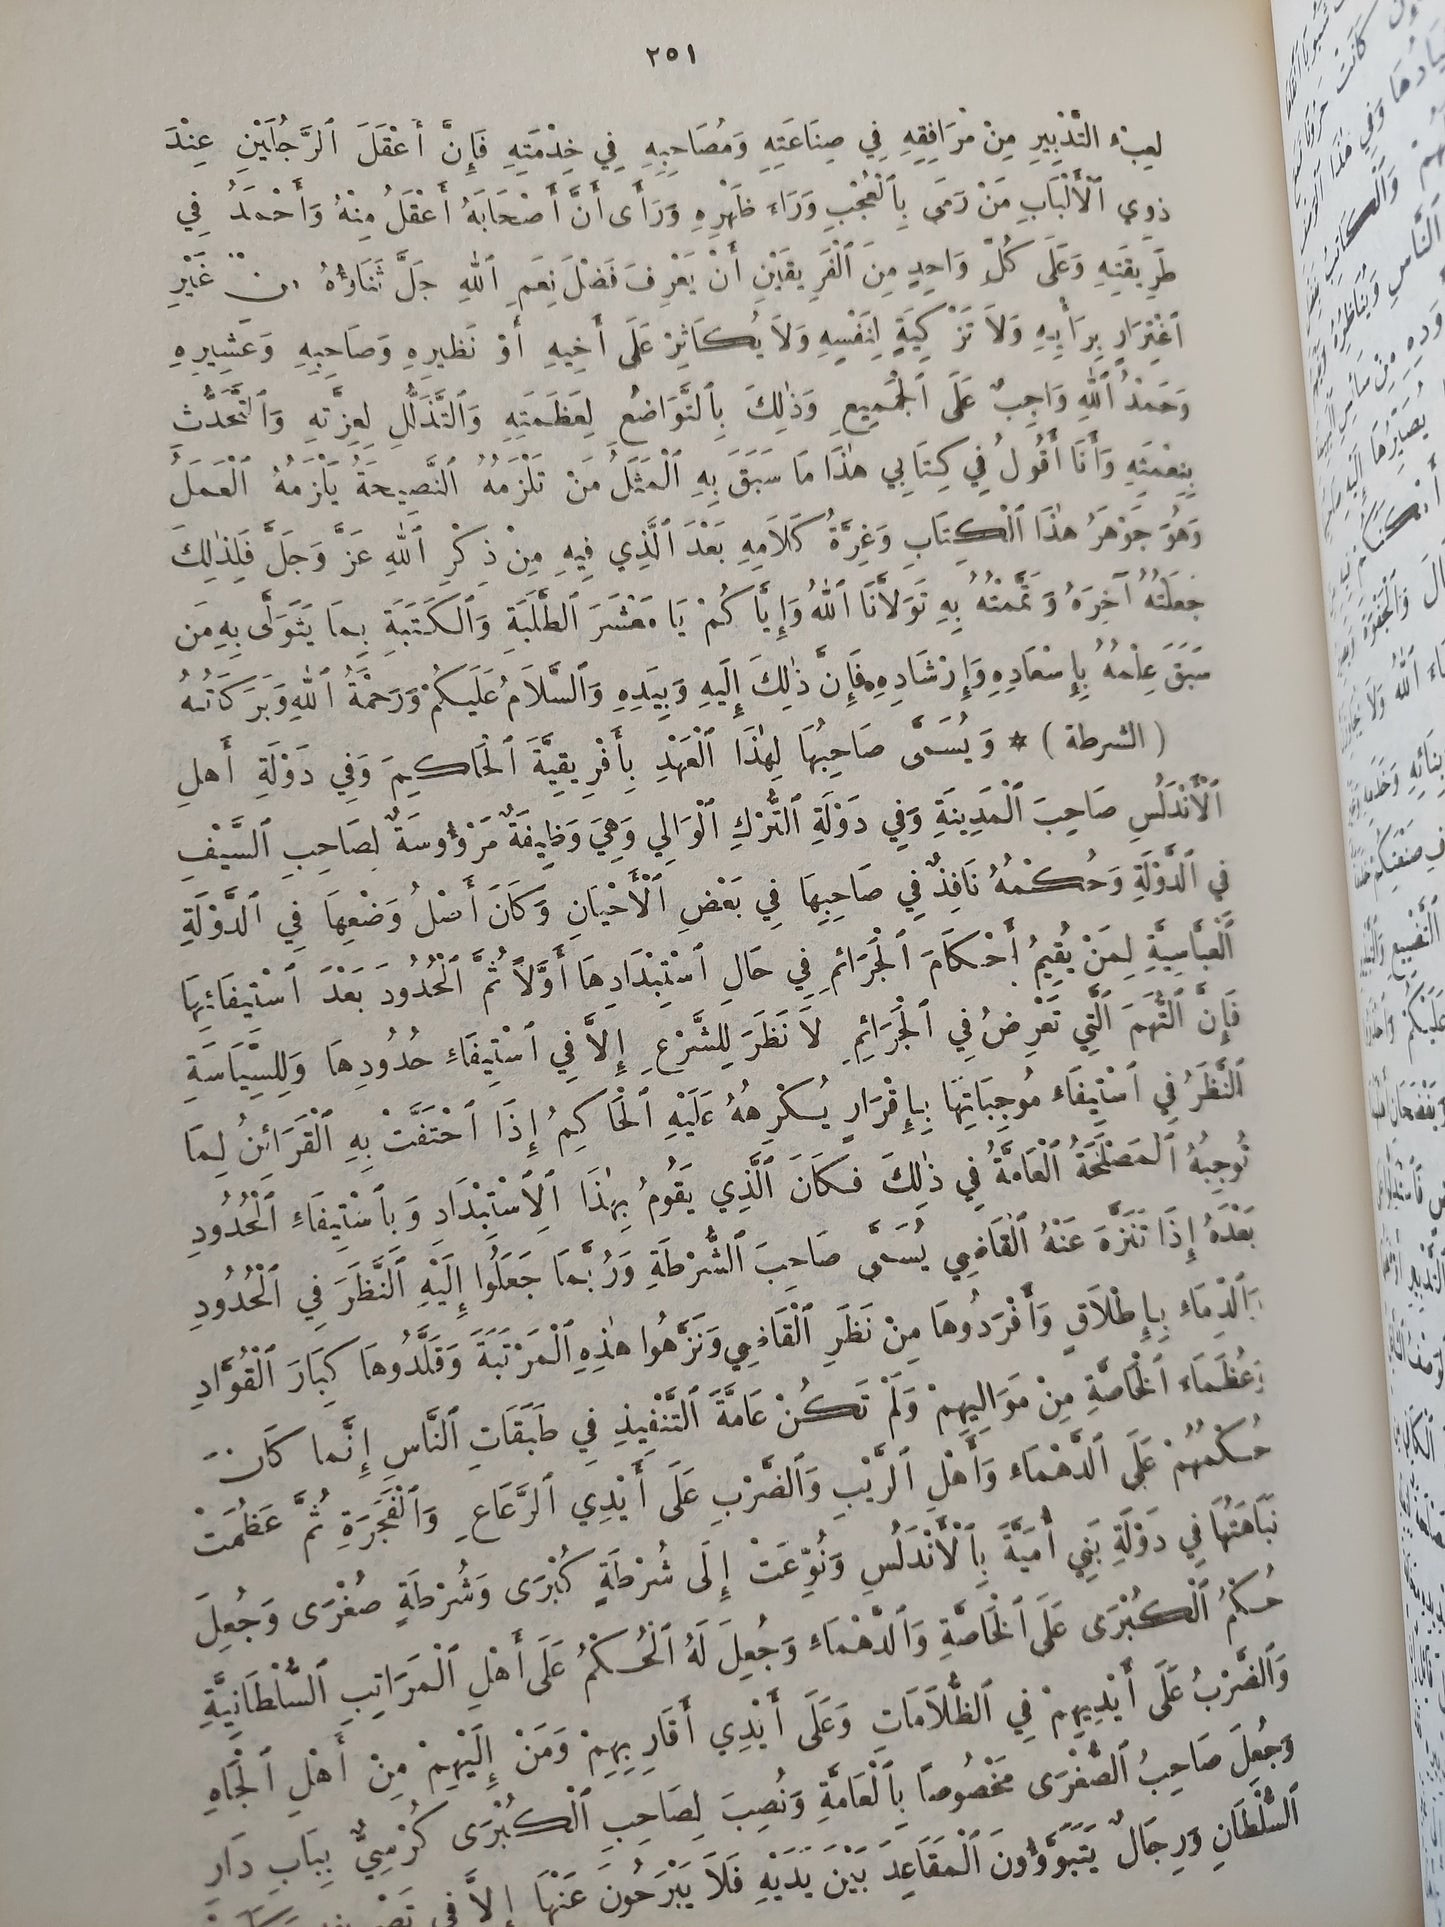 ٢٥١
لِعِبْءِ التَّدْبِيرِ مِنْ مُرَافِقِهِ فِي صِنَاعَتِهِ وَمُصَاحِبِهِ فِي خِدْمَتِهِ فَإِنَّ أَعْقَلَ ٱلرَّجُلَيْنِ عِنْدَ
ذَوِي ٱلْأَلْبَابِ مَنْ رَمَى بِٱلْعُجْبِ وَرَاءَ ظَهْرِهِ وَرَأَى أَنَّ أَصْحَابَهُ أَعْقَلُ مِنْهُ وَأَحْمَدُ فِي
طَرِيقَتِهِ وَعَلَى كُلِّ وَاحِدٍ مِنَ ٱلْفَرِيقَيْنِ أَنْ يَعْرِفَ فَضْلَ نِعَمِ ٱللهِ جَلَّ ثَنَاؤُهُ مِنْ غَيْرِ
ٱغْتِرَارٍ بِرَأْيِهِ وَلاَ تَزْكِيَةٍ لِنَفْسِهِ وَلاَ يُكَاثِرْ عَلَى أَخِيهِ أَوْ نَظِيرِهِ وَصَاحِبِهِ وَعَشِيرِهِ
وَحَمْدُ ٱللهِ وَاجِبٌ عَلَى ٱلْجَمِيعِ وَذٰلِكَ بِٱلتَّوَاضُعِ لِعَظَمَتِهِ وَٱلتَّذَلُّلِ لِعِزَّتِهِ وَٱلتَّحَدُّثِ
بِنِعْمَتِهِ وَأَنَا أَقُولُ فِي كِتَابِي هٰذَا مَا سَبَقَ بِهِ ٱلْمَثَلُ مَنْ تَلْزَمُهُ ٱلنَّصِيحَةُ يَلْزَمُهُ ٱلْعَمَلُ
وَهُوَ جَوْهَرُ هٰذَا ٱلْكِتَابِ وَغُرَّةُ كَلاَمِهِ بَعْدَ ٱلَّذِي فِيهِ مِنْ ذِكْرِ ٱللهِ عَزَّ وَجَلَّ فَلِذٰلِكَ
جَعَلْتُهُ آخِرَهُ وَتَمَّمْتُهُ بِهِ تَوَلاَّنَا ٱللهُ وَإِيَّاكُمْ يَا مَعْشَرَ ٱلطَّلَبَةِ وَٱلْكَتَبَةِ بِمَا يَتَوَلَّى بِهِ مَنْ
سَبَقَ عِلْمُهُ بِإِسْعَادِهِ وَإِرْشَادِهِ فَإِنَّ ذٰلِكَ إِلَيْهِ وَبِيَدِهِ وَٱلسَّلاَمُ عَلَيْكُمْ وَرَحْمَةُ ٱللهِ وَبَرَكَاتُهُ
( الشرطة ) * وَيُسَمَّى صَاحِبُهَا لِهٰذَا ٱلْعَهْدِ بِأَفْرِيقِيَّةَ ٱلْحَاكِمَ وَفِي دَوْلَةِ أَهْلِ
ٱلْأَنْدَلُسِ صَاحِبَ ٱلْمَدِينَةِ وَفِي دَوْلَةِ ٱلتُّرْكِ ٱلْوَالِي وَهِيَ وَظِيفَةٌ مَرْؤُوسَةٌ لِصَاحِبِ ٱلسَّيْفِ
فِي ٱلدَّوْلَةِ وَحُكْمُهُ نَافِذٌ فِي صَاحِبِهَا فِي بَعْضِ ٱلْأَحْيَانِ وَكَانَ أَصْلُ وَضْعِهَا فِي ٱلدَّوْلَةِ
ٱلْعَبَّاسِيَّةِ لِمَنْ يُقِيمُ أَحْكَامَ ٱلْجَرَائِمِ فِي حَالِ ٱسْتِبْدَادِهَا أَوَّلاً ثُمَّ ٱلْحُدُودَ بَعْدَ ٱسْتِيفَائِهَا
فَإِنَّ ٱلتُّهَمَ ٱلَّتِي تَعْرِضُ فِي ٱلْجَرَائِمِ لاَ نَظَرَ لِلشَّرْعِ إِلاَّ فِي ٱسْتِيفَاءِ حُدُودِهَا وَلِلسِّيَاسَةِ
ٱلنَّظَرُ فِي ٱسْتِيفَاءِ مُوجِبَاتِهَا بِإِقْرَارٍ يُكْرِهُهُ عَلَيْهِ ٱلْحَاكِمُ إِذَا ٱحْتَفَّتْ بِهِ ٱلْقَرَائِنُ لِمَا
تُوجِبُهُ ٱلْمَصْلَحَةُ ٱلْعَامَّةُ فِي ذٰلِكَ فَكَانَ ٱلَّذِي يَقُومُ بِهٰذَا ٱلِٱسْتِبْدَادِ وَبِٱسْتِيفَاءِ ٱلْحُدُودِ
بَعْدَهُ إِذَا تَنَزَّهَ عَنْهُ ٱلْقَاضِي يُسَمَّى صَاحِبَ ٱلشُّرْطَةِ وَرُبَّمَا جَعَلُوا إِلَيْهِ ٱلنَّظَرَ فِي ٱلْحُدُودِ
وَٱلدِّمَاءِ بِإِطْلاَقٍ وَأَفْرَدُوهَا مِنْ نَظَرِ ٱلْقَاضِي وَنَزَّهُوا هٰذِهِ ٱلْمَرْتَبَةَ وَقَلَّدُوهَا كِبَارَ ٱلْقُوَّادِ
وَعُظَمَاءَ ٱلْخَاصَّةِ مِنْ مَوَالِيهِمْ وَلَمْ تَكُنْ عَامَّةَ ٱلتَّنْفِيذِ فِي طَبَقَاتِ ٱلنَّاسِ إِنَّمَا كَانَ
حُكْمُهُمْ عَلَى ٱلدَّهْمَاءِ وَأَهْلِ ٱلرَّيْبِ وَٱلضَّرْبِ عَلَى أَيْدِي ٱلرَّعَاعِ وَٱلْفَجَرَةِ ثُمَّ عَظُمَتْ
نَبَاهَتُهَا فِي دَوْلَةِ بَنِي أُمَيَّةَ بِٱلْأَنْدَلُسِ وَنُوِّعَتْ إِلَى شُرْطَةٍ كُبْرَى وَشُرْطَةٍ صُغْرَى وَجُعِلَ
حُكْمُ ٱلْكُبْرَى عَلَى ٱلْخَاصَّةِ وَٱلدَّهْمَاءِ وَجُعِلَ لَهُ ٱلْحُكْمُ عَلَى أَهْلِ ٱلْمَرَاتِبِ ٱلسُّلْطَانِيَّةِ
وَٱلضَّرْبُ عَلَى أَيْدِيهِمْ فِي ٱلظُّلاَمَاتِ وَعَلَى أَيْدِي أَقَارِبِهِمْ وَمَنْ إِلَيْهِمْ مِنْ أَهْلِ ٱلْجَاهِ
وَجُعِلَ صَاحِبُ ٱلصُّغْرَى مَخْصُوصاً بِٱلْعَامَّةِ وَنُصِبَ لِصَاحِبِ ٱلْكُبْرَى كُرْسِيٌّ بِبَابِ دَارِ
ٱلسُّلْطَانِ وَرِجَالٌ يَتَبَوَّؤُونَ ٱلْمَقَاعِدَ بَيْنَ يَدَيْهِ فَلاَ يَبْرَحُونَ عَنْهَا إِلاَّ فِي